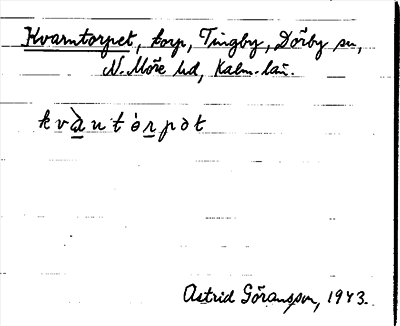 Kvarntorpet, torp, Tingby, Dörby sn,
N. Möre hd, Kalm. län.
kvàntórpət
Astrid Göransson, 1943.